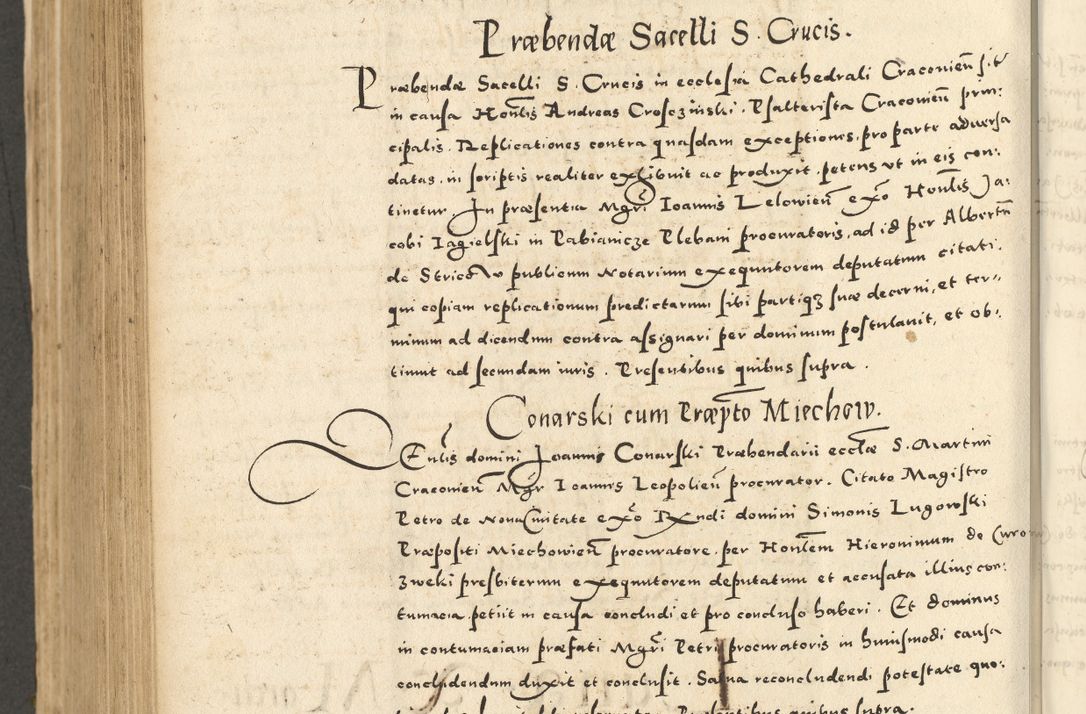 Præbendæ Sacelli S. Crucis.
Præbendæ Sacelli S. Crucis in ecclesia Cathedrali Craconien̄ sit
in causa Hon̄lis Andreas Crosczinski. Psalterista Craconien̄ prin:
cipalis. Replicationes contra quasdam exceptiones, pro parte adversa
datas, in scriptis realiter exhibuit ac produxit. petens ut in eis con:
tinetur. In præsentia Mgrī Ioannis Lelowien̄ ex̄o Hon̄lis Ja:
cobi Iagielski in Pabianicze Plebani procuratoris, ad id per Albertū
de publicum Notarium exequutorem deputatum citati.
qui copiam replicationum predictarum sibi partiq3 suæ decerni, et ter:
minum ad dicendum contra assignari per dominum postulavit, et ob:
tinuit ad secundam iuris. Presentibus quibus supra.
Conarski cum Præp̄to Miechow.
domini Joannis Conarski Præbendarii eccl̄æ S. Martini
Craconien̄ Mgr Ioannis Leopolien̄ procurator. Citato Magistro
Petro de Nova Civitate ex̄o R̄xndi domini Simonis Lugowski
Præpositi Miechowien̄ procuratore, per Hon̄lem Hieronimum de
zweki presbiterum exequutorem deputatum et accusata illius con:
tumacia petiit in causa concludi et pro concluso haberi. Et dominus
in contumaciam præfati Mgrī Petri procuratoris in huiusmodi causa
concludendum duxit et conclusit. Salva reconcludendi potestate quo:
Presentibus quibus supra.